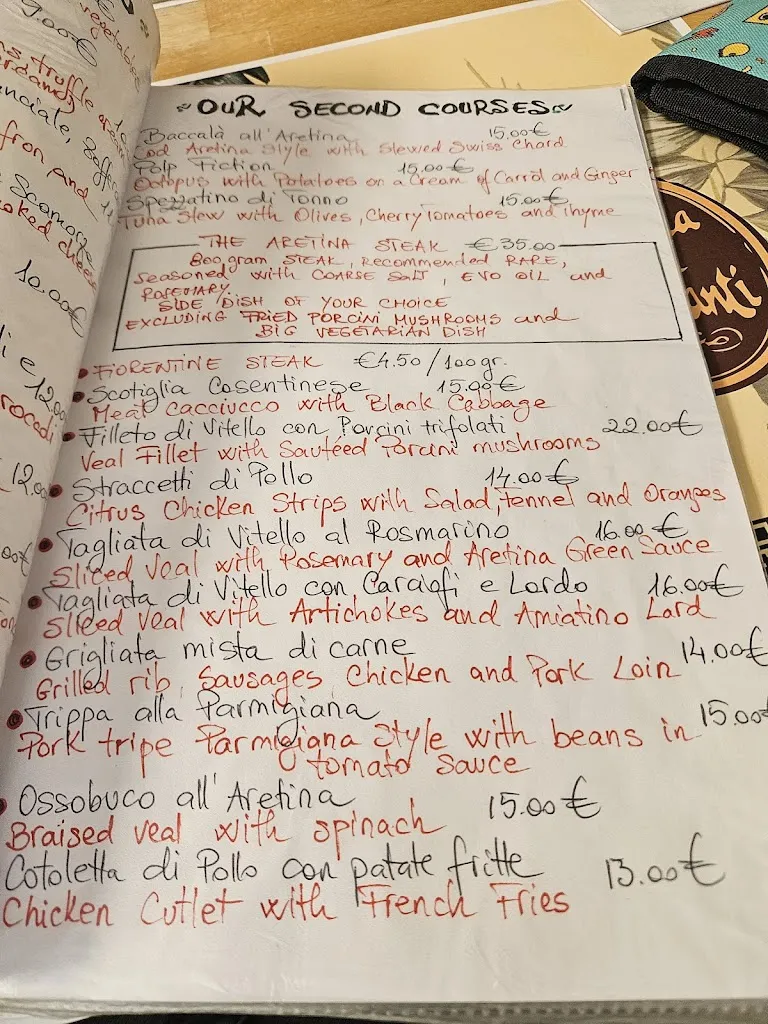 9.00€
vegetables
truffle
12.00
10.00€
12.00
~OUR SECOND COURSES~
Baccalà all'Aretina 15.00€
Cod Aretina Style with Stewed Swiss Chard
Polp Fiction 15.00€
Octopus with Potatoes on a Cream of Carrot and Ginger
Spezzatino di Tonno 15.00€
Tuna Stew with Olives, Cherry Tomatoes and Thyme
THE ARETINA STEAK €35.00
800 gram STEAK, RECOMMENDED RARE,
seasoned with COARSE SALT, EVO OIL and
ROSEMARY.
SIDE DISH OF YOUR CHOICE
EXCLUDING FRIED PORCINI MUSHROOMS and
BIG VEGETARIAN DISH
• FIORENTINE STEAK €4.50/100gr.
• Scotiglia Casentinese 15.00€
Meat cacciucco with Black Cabbage
• Filleto di Vitello con Porcini trifolati 22.00€
Veal Fillet with Sautéed Porcini mushrooms
• Straccetti di Pollo 14.00€
Citrus Chicken Strips with Salad, Fennel and Oranges
• Tagliata di Vitello al Rosmarino 16.00€
Sliced Veal with Rosemary and Aretina Green Sauce
• Tagliata di Vitello con Carciofi e Lardo 16.00€
Sliced Veal with Artichokes and Amiatino Lard
• Grigliata mista di carne 14.00€
Grilled rib, Sausages, Chicken and Pork Loin
• Trippa alla Parmigiana 15.00€
Pork tripe Parmigiana Style with beans in
tomato sauce
• Ossobuco all'Aretina 15.00€
Braised veal with spinach
Cotoletta di Pollo con patate fritte 13.00€
Chicken Cutlet with French Fries